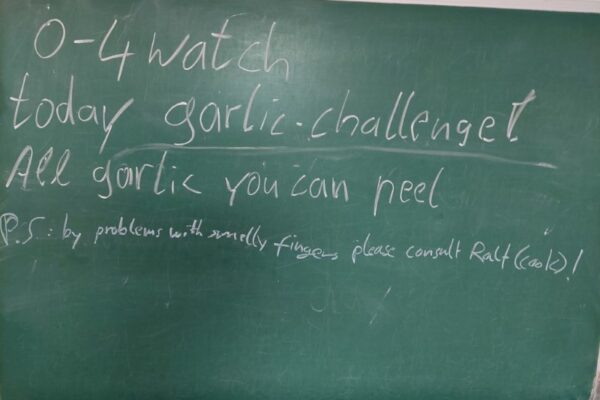 0-4 watch
today garlic-challenge!
All garlic you can peel
P.S.: by problems with smelly fingers please consult Ralf (cook)!